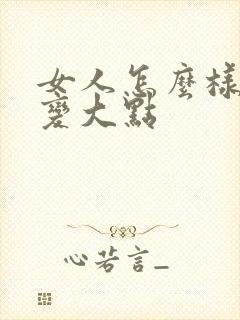 女人怎麼樣
變大點
心若言_